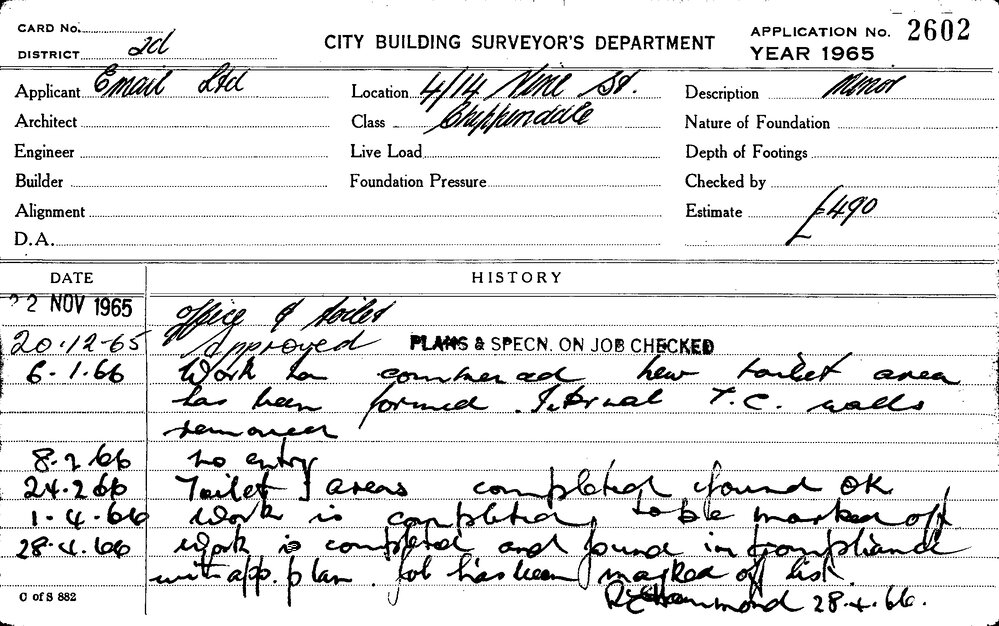 CARD No.
DISTRICT 2d
CITY BUILDING SURVEYOR'S DEPARTMENT
APPLICATION No. 2602
YEAR 1965
Applicant Email Ltd
Location 4/14 Vine St.
Description Minor
Architect
Class Chippendale
Nature of Foundation
Engineer
Live Load
Depth of Footings
Builder
Foundation Pressure
Checked by
Alignment
Estimate £490
D.A.
DATE HISTORY
22 NOV 1965 office & toilet
20.12.65 Approved PLANS & SPECN. ON JOB CHECKED
6.1.66 Work has commenced new toilet area
has been formed. Internal T.C. walls
removed
8.2.66 no entry
24.2.66 Toilet areas completed found OK
1.4.66 Work is completed, to be marked off
28.4.66 Work is completed and found in compliance
with app. plan. Job has been marked off list.
C of S 882
R E Hammond 28.4.66.